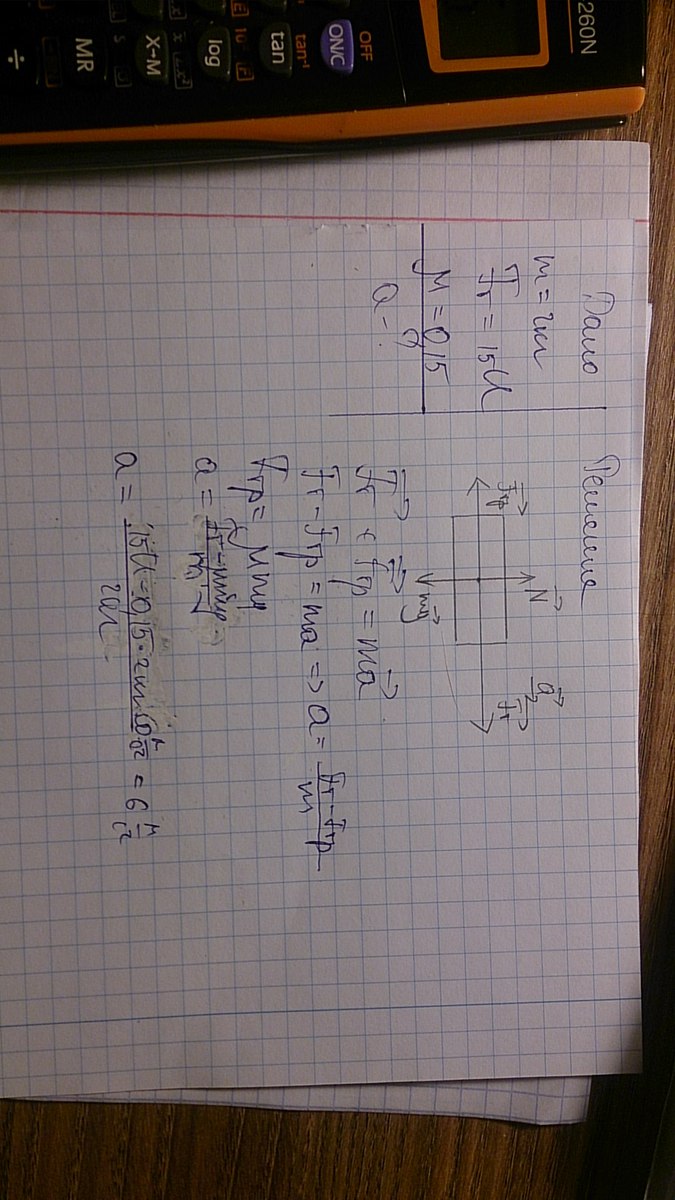 260N
OFF
ON/C
tan⁻¹
tan
log
X-M
MR
÷
Дано
m = 2кг
Fт = 15Н
μ = 0,15
a - ?
Решение
N
Fтр
mg
a
Fт
Fт + Fтр = ma
Fт - Fтр = ma => a = Fт - Fтр / m
Fтр = μmg
a = Fт - μmg / m
a = 15Н - 0,15 · 2кг · 10 м/с² / 2кг = 6 м/с²